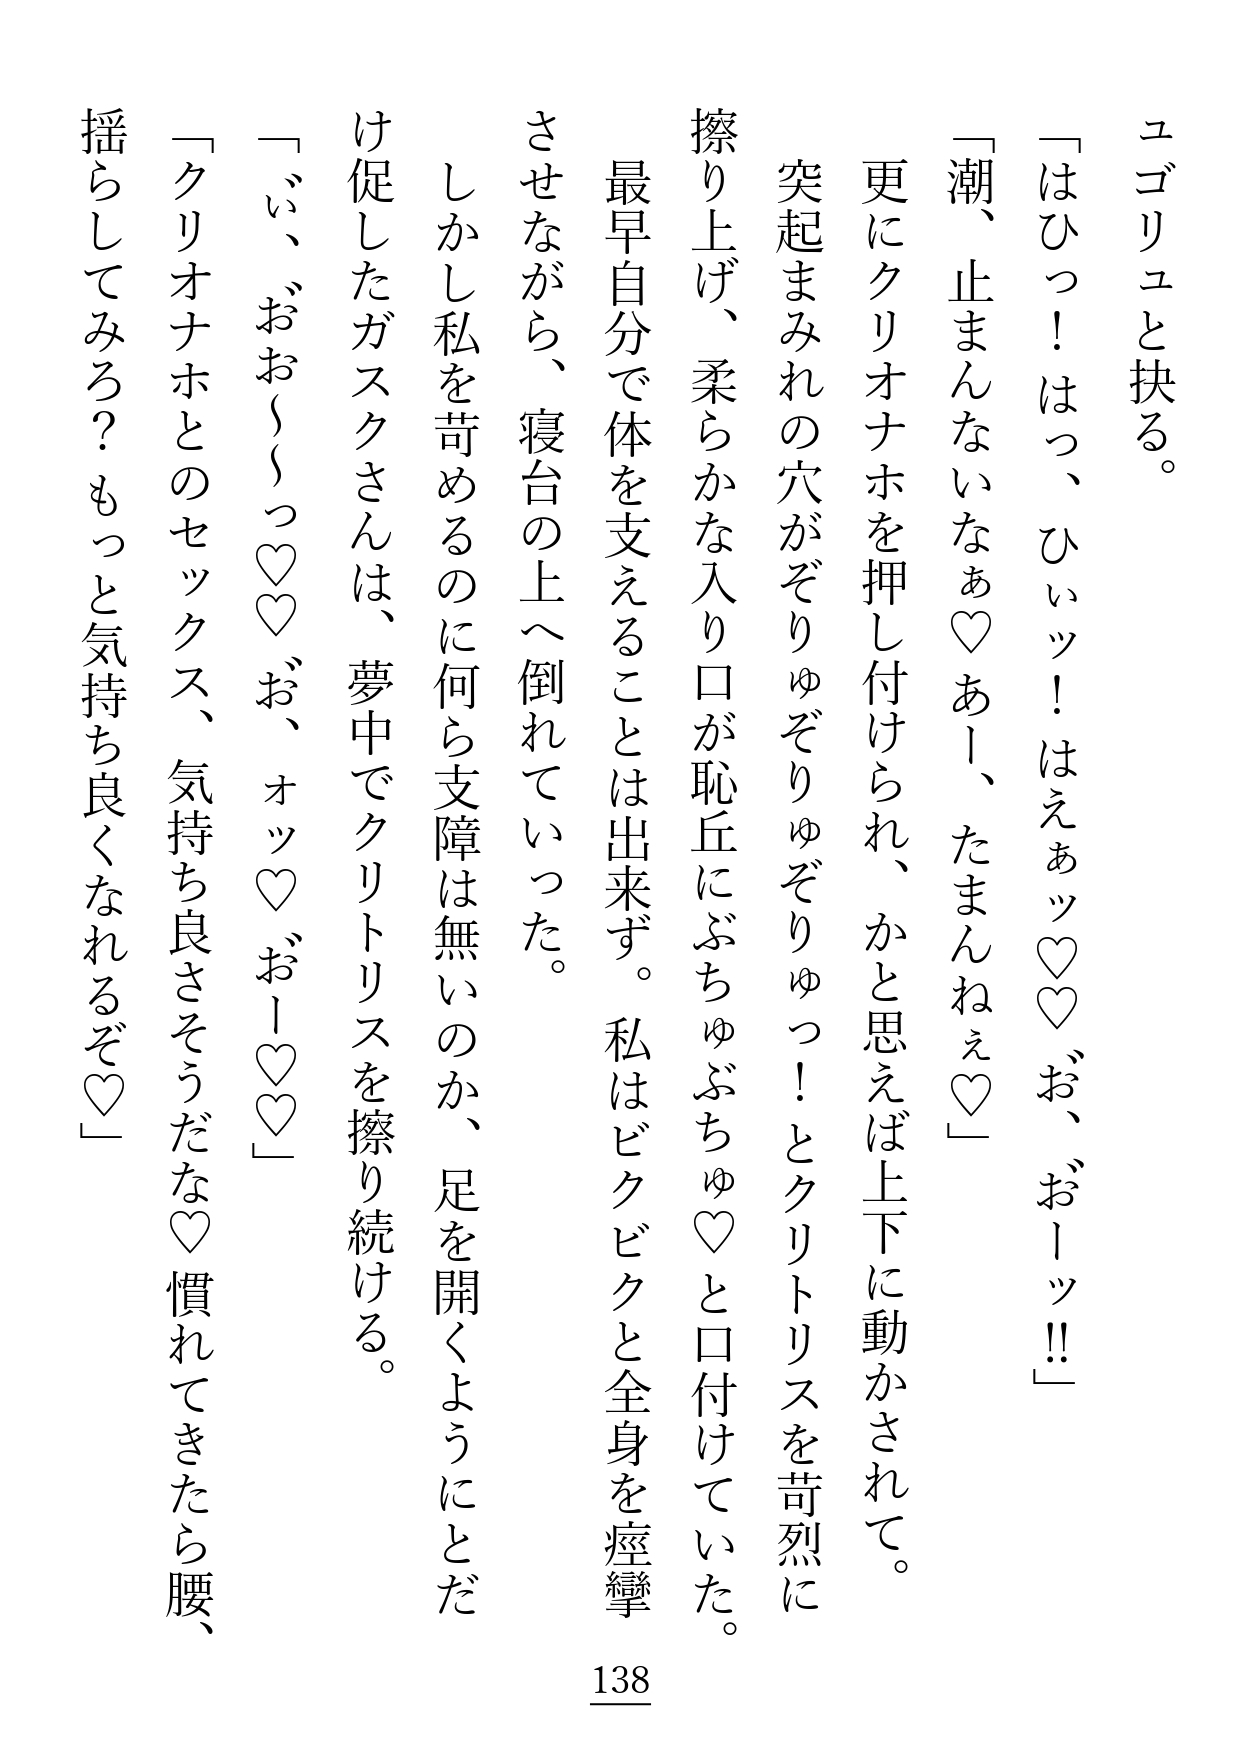 ュゴリュと抉る。
「はひっ！ はっ、ひぃッ！ はえぁッ♡♡ お゛、お゛ーッ!!」
「潮、止まんないなぁ♡ あー、たまんねぇ♡」
　更にクリオナホを押し付けられ、かと思えば上下に動かされて。
　突起まみれの穴がぞりゅぞりゅぞりゅっ！とクリトリスを苛烈に
擦り上げ、柔らかな入り口が恥丘にぶちゅぶちゅ♡と口付けていた。
　最早自分で体を支えることは出来ず。私はビクビクと全身を痙攣
させながら、寝台の上へ倒れていった。
　しかし私を苛めるのに何ら支障は無いのか、足を開くようにとだ
け促したガスクさんは、夢中でクリトリスを擦り続ける。
「ぃ゛、お゛お〜〜っ♡♡ お゛、ォッ♡ お゛ー♡♡」
「クリオナホとのセックス、気持ち良さそうだな♡ 慣れてきたら腰、
揺らしてみろ？ もっと気持ち良くなれるぞ♡」
138